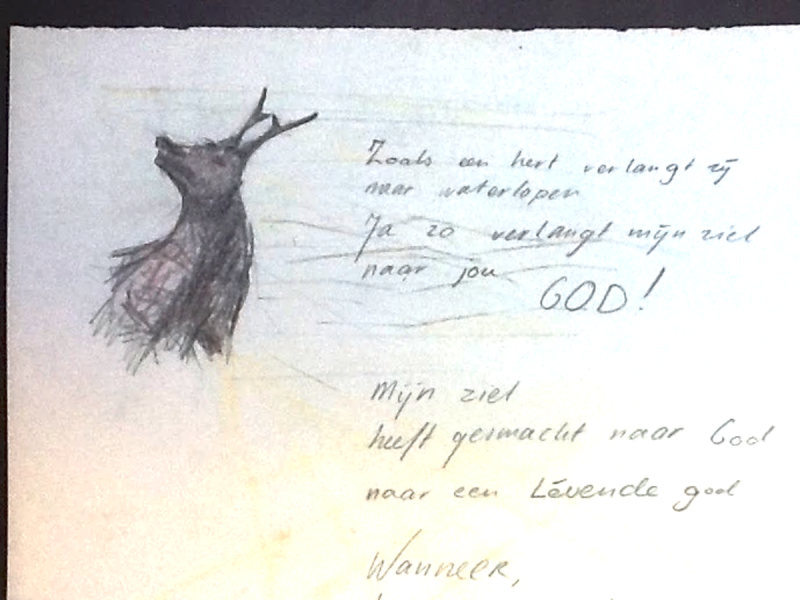 Zoals een hert verlangt zij
naar waterlopen
Ja zo verlangt mijn ziel
naar jou
GOD!
Mijn ziel
heeft gesmacht naar God
naar een Lévende god
Wanneer,